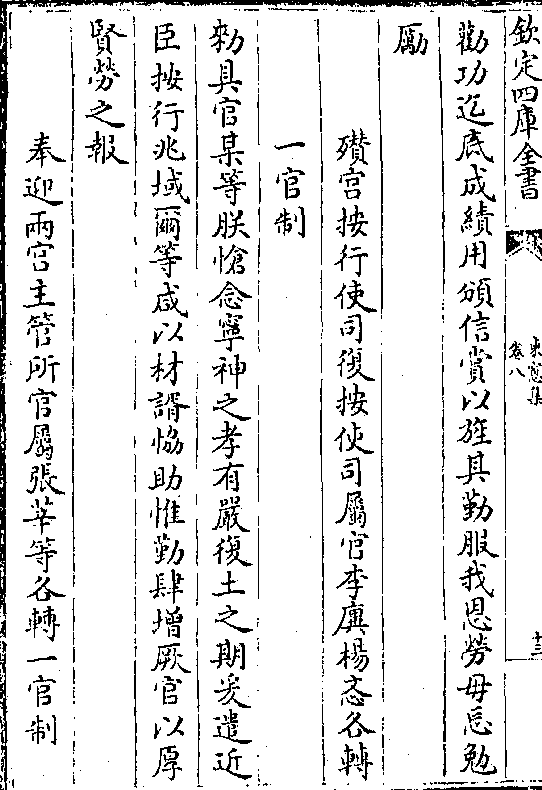 欽定四庫全書
東窗集
卷八
十三
勸功迄底成績用頒信賞以旌其勤服我恩勞毋忘勉
厲
殯宮按行使司復按使司屬官李㢘楊忞各轉
一官制
勑具官某等朕愴念寧神之孝有嚴復土之期爰遣近
臣按行兆域爾等咸以材諝恊助惟勤肆增厥官以厚
賢勞之報
奉迎兩宮主管所官屬張莘等各轉一官制